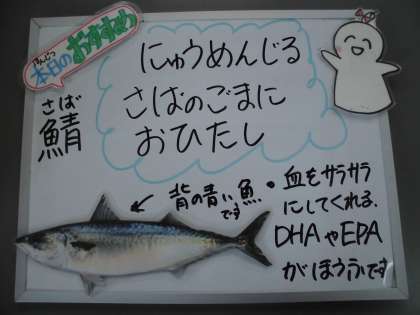 本日のおすすめ
にゅうめんじる
さばのごまに
おひたし
さば
鯖
背の青い魚
です
・血をサラサラ
にしてくれる、
DHAやEPA
がほうふです